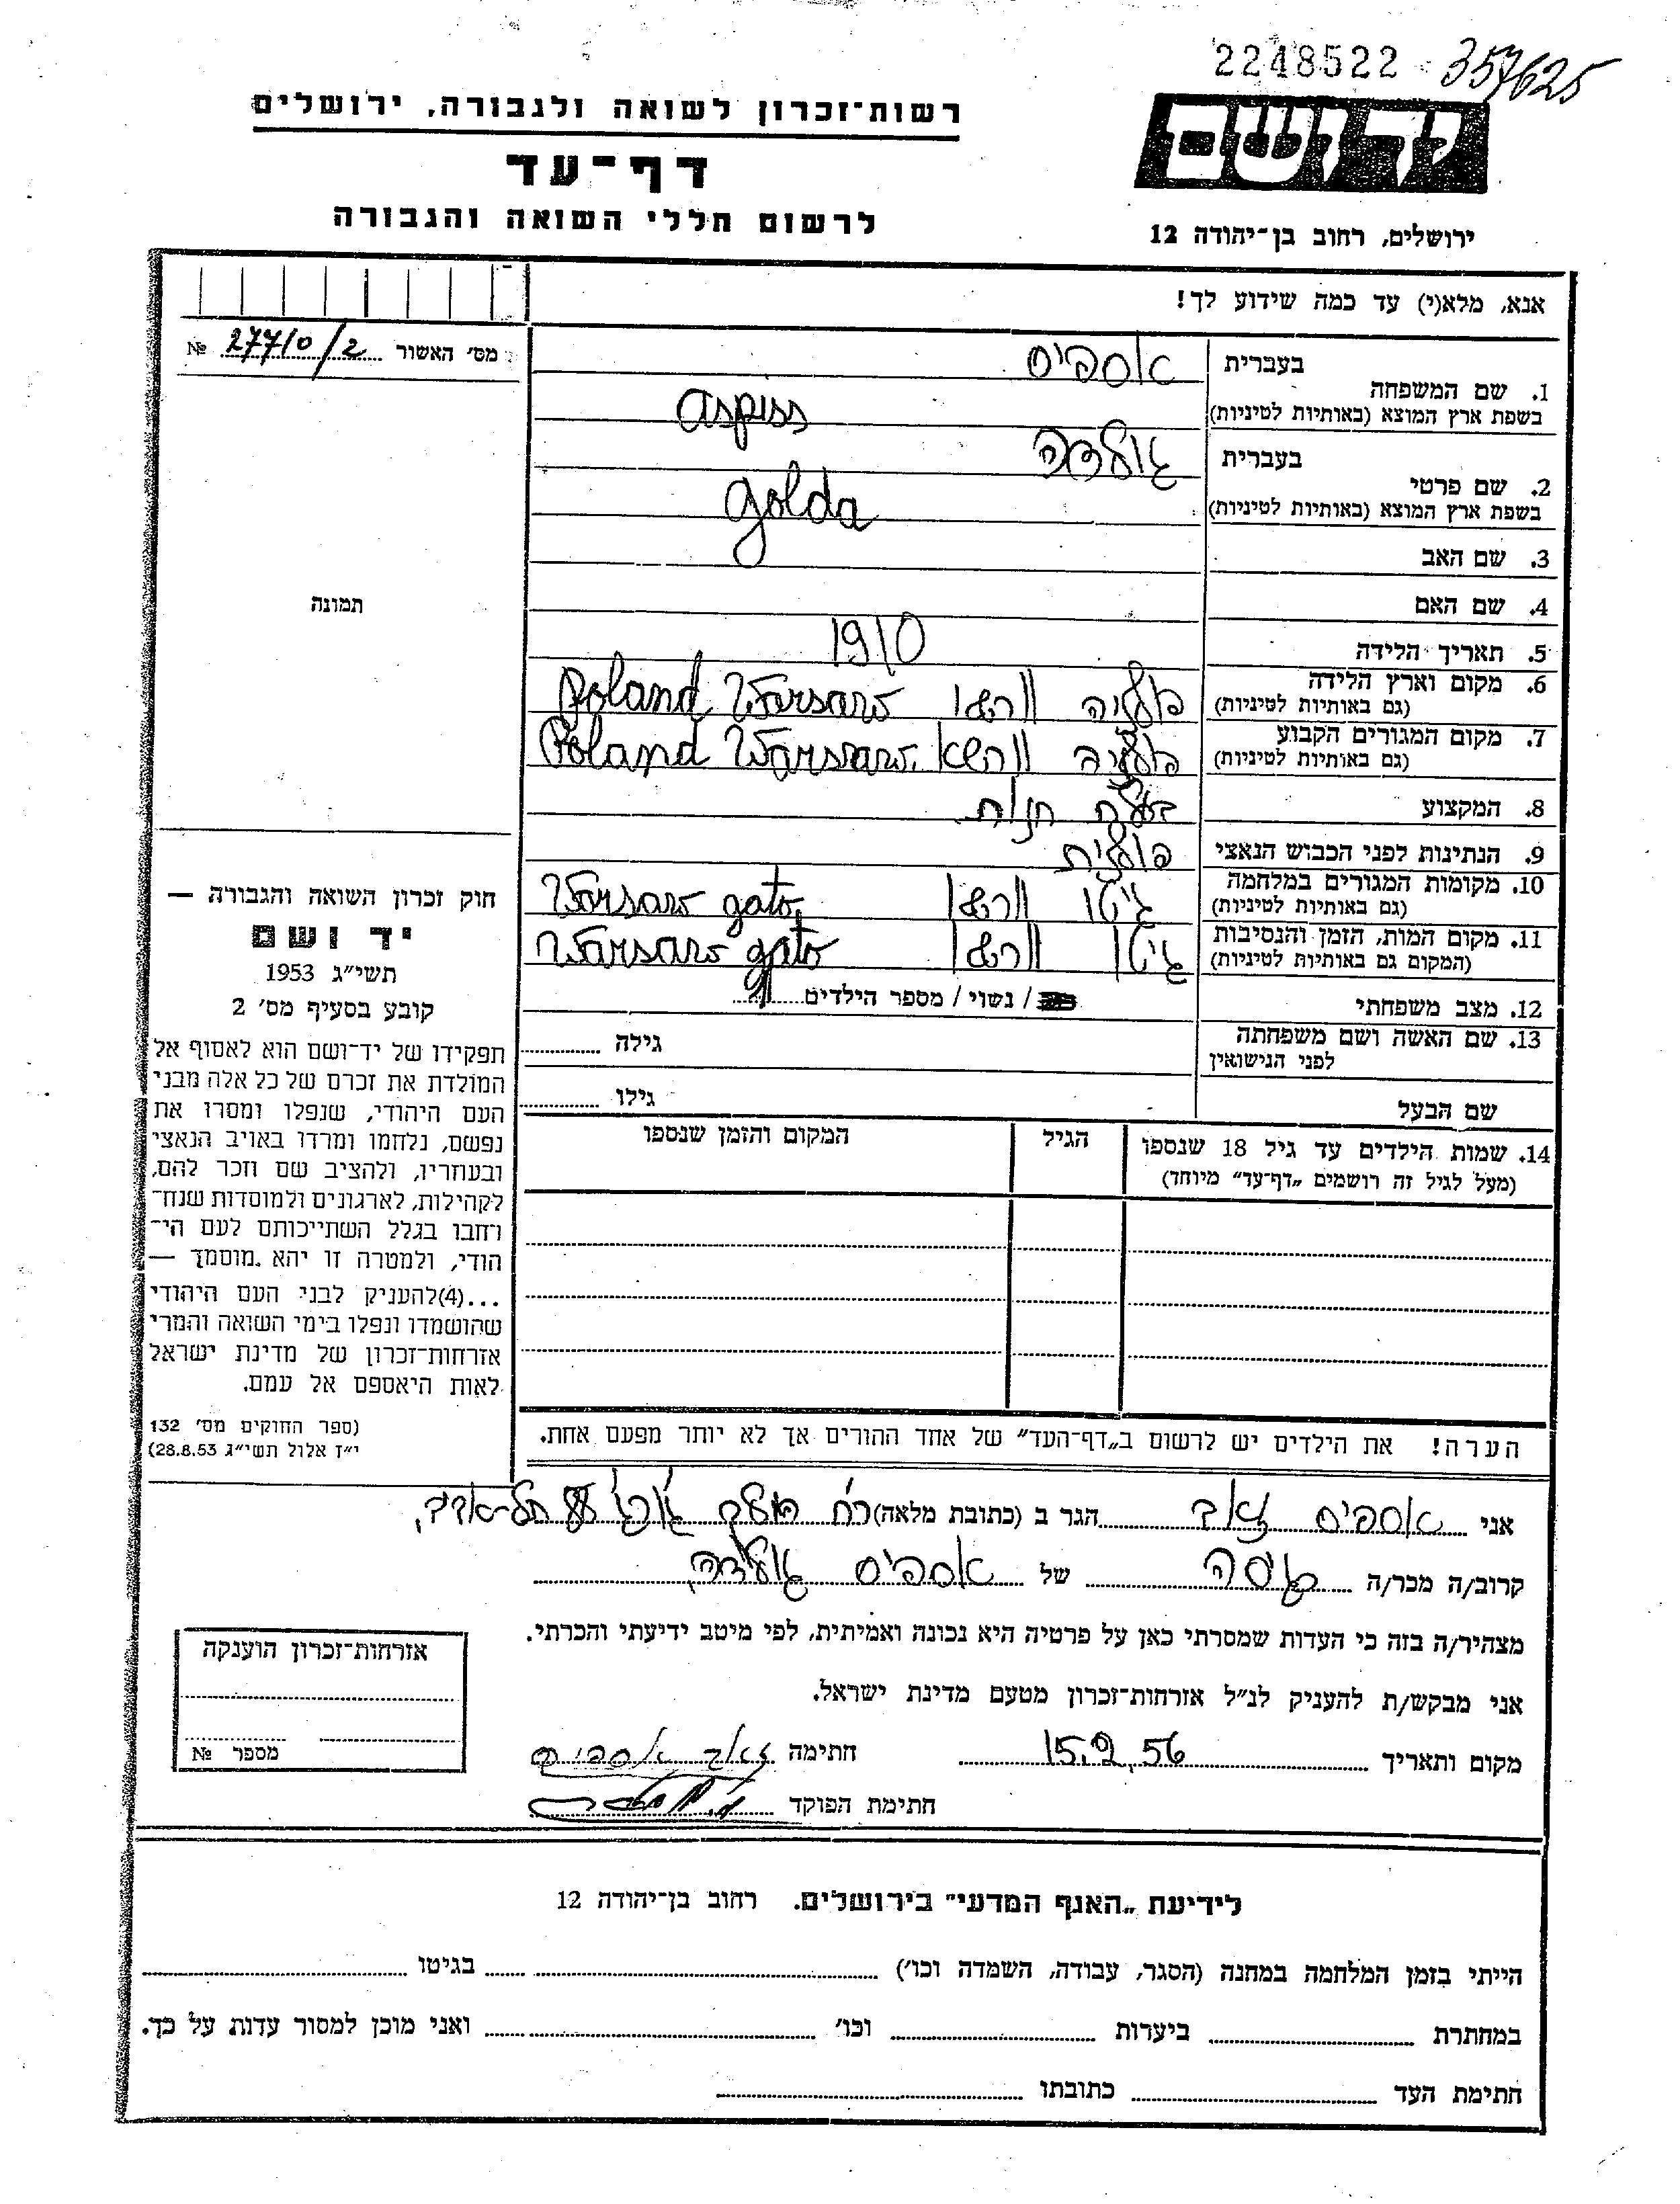 2248522 357625
יד ושם
רשות־זכרון לשואה ולגבורה, ירושלים
דף־עד
לרשום חללי השואה והגבורה
ירושלים, רחוב בן־יהודה 12
אנא, מלא(י) עד כמה שידוע לך!
מס׳ האשור 277/0/2 №
תמונה
1. שם המשפחה בעברית אספיס
בשפת ארץ המוצא (באותיות לטיניות) Aspiss
2. שם פרטי בעברית גולדה
בשפת ארץ המוצא (באותיות לטיניות) Golda
3. שם האב
4. שם האם
5. תאריך הלידה 1910
6. מקום וארץ הלידה פולניה וורשו Poland Warsaw
(גם באותיות לטיניות)
7. מקום המגורים הקבוע פולניה וורשא Poland Warsaw.
(גם באותיות לטיניות)
8. המקצוע בעלת חנות
9. הנתינות לפני הכבוש הנאצי פולנית
10. מקומות המגורים במלחמה גיטו וורשו Warsaw gato
(גם באותיות לטיניות)
11. מקום המות, הזמן והנסיבות גיטו וורשו Warsaw gato
(המקום גם באותיות לטיניות)
12. מצב משפחתי / נשוי / מספר הילדים
13. שם האשה ושם משפחתה גילה
לפני הנישואין
שם הבעל גילו
14. שמות הילדים עד גיל 18 שנספו הגיל המקום והזמן שנספו
(מעל לגיל זה רושמים „דף־עד״ מיוחד)
הערה! את הילדים יש לרשום ב„דף־העד״ של אחד ההורים אך לא יותר מפעם אחת.
חוק זכרון השואה והגבורה —
יד ושם
תשי״ג 1953
קובע בסעיף מס׳ 2
תפקידו של יד־ושם הוא לאסוף אל
המולדת את זכרם של כל אלה מבני
העם היהודי, שנפלו ומסרו את
נפשם, נלחמו ומרדו באויב הנאצי
ובעוזריו, ולהציב שם וזכר להם,
לקהילות, לארגונים ולמוסדות שנח־
רחבו בגלל השתייכותם לעם הי־
הודי, ולמטרה זו יהא מוסמך —
...(4)להעניק לבני העם היהודי
שהושמדו ונפלו בימי השואה והמרי
אזרחות־זכרון של מדינת ישראל
לאות היאספם אל עמם.
(ספר החוקים מס׳ 132
י״ז אלול תשי״ג 28.8.53)
אני אספיס זאב הגר ב (כתובת מלאה) רח׳ תל־אביב.
קרוב/ה מכר/ה גיסה של אספיס גולדה
מצהיר/ה בזה כי העדות שמסרתי כאן על פרטיה היא נכונה ואמיתית, לפי מיטב ידיעתי והכרתי.
אני מבקש/ת להעניק לנ״ל אזרחות־זכרון מטעם מדינת ישראל.
מקום ותאריך 15.2.56 חתימה זאב אספיס
חתימת הפוקד
אזרחות־זכרון הוענקה
מספר №
לידיעת „האגף המדעי״ בירושלים. רחוב בן־יהודה 12
הייתי בזמן המלחמה במחנה (הסגר, עבודה, השמדה וכו׳) בגיטו
במחתרת ביערות וכו׳ ואני מוכן למסור עדות על כך.
חתימת העד כתובתו